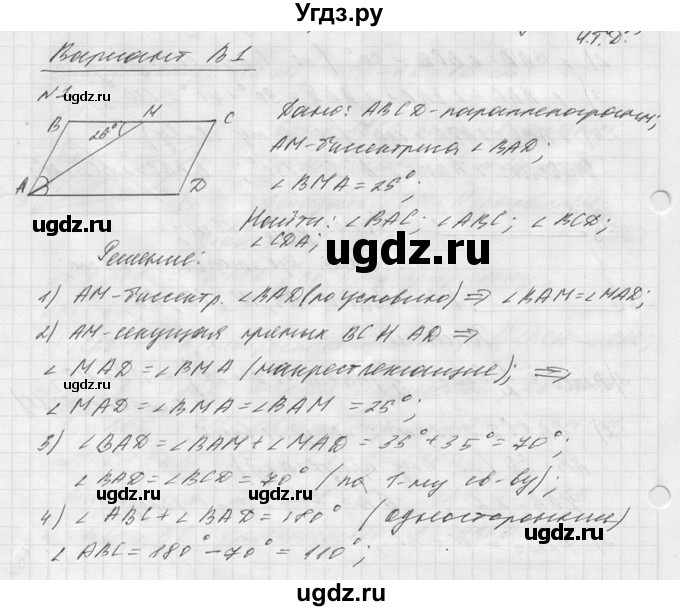 Угдз.ру
Ч.Т.Д.
Вариант В1
N1
B M C
25°
A D
ugdz.ru
Дано: ABCD-параллелограмм;
AM-биссектриса ∠BAD;
∠BMA = 25°;
Найти: ∠BAC; ∠ABC; ∠BCD;
∠CDA;
ugdz.ru
Решение:
1) AM-биссектр. ∠BAD (по условию) ⇒ ∠BAM = ∠MAD;
2) AM-секущая прямых BC и AD ⇒
∠MAD = ∠BMA (накрестлежащие); ⇒
∠MAD = ∠BMA = ∠BAM = 25°;
3) ∠BAD = ∠BAM + ∠MAD = 35° + 35° = 70°;
∠BAD = ∠BCD = 70° (по 1-му св-ву);
ugdz.ru ugdz.ru
4) ∠ABC + ∠BAD = 180° (односторонние)
∠ABC = 180° - 70° = 110°;
ugdz.ru